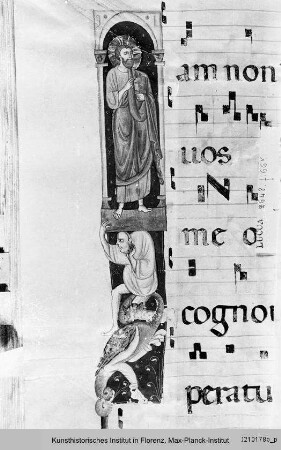 am non
uos
N
me o
cognou
peratu
Kunsthistorisches Institut in Florenz, Max-Planck-Institut